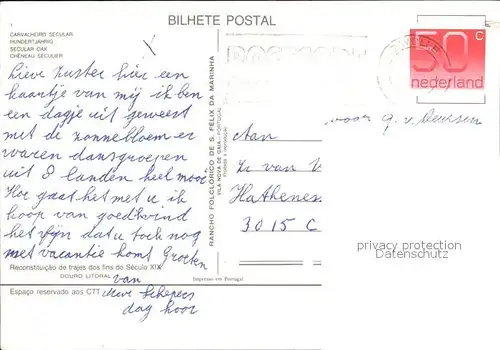 BILHETE POSTAL
CARVALHEIRO SECULAR
HUNDERTJÄHRIG
SECULAR OAK
CHÊNEAU SÉCULIER
lieve zuster hier een
kaartje van mij ik ben
een dagje uit geweest
met de zonnebloem er
waren dansgroepen
uit 8 landen heel mooi
Hoe gaat het met u ik
hoop van goed
het fijn dat u toch nog
met vacantie komt Groeten
van
Mevr Schepers
dag hoor
Reconstituição de trajes dos fins do Século XIX
DOURO LITORAL
Espaço reservado aos CTT
Impresso em Portugal
RANCHO FOLCLÓRICO DE S. FÉLIX DA MARINHA
VILA NOVA DE GAIA - PORTUGAL
Proibida a reprodução
50 c
nederland
voor g. v. Deursen
Aan
Zr van V
Hathenes
3015 C
privacy protection
Datenschutz